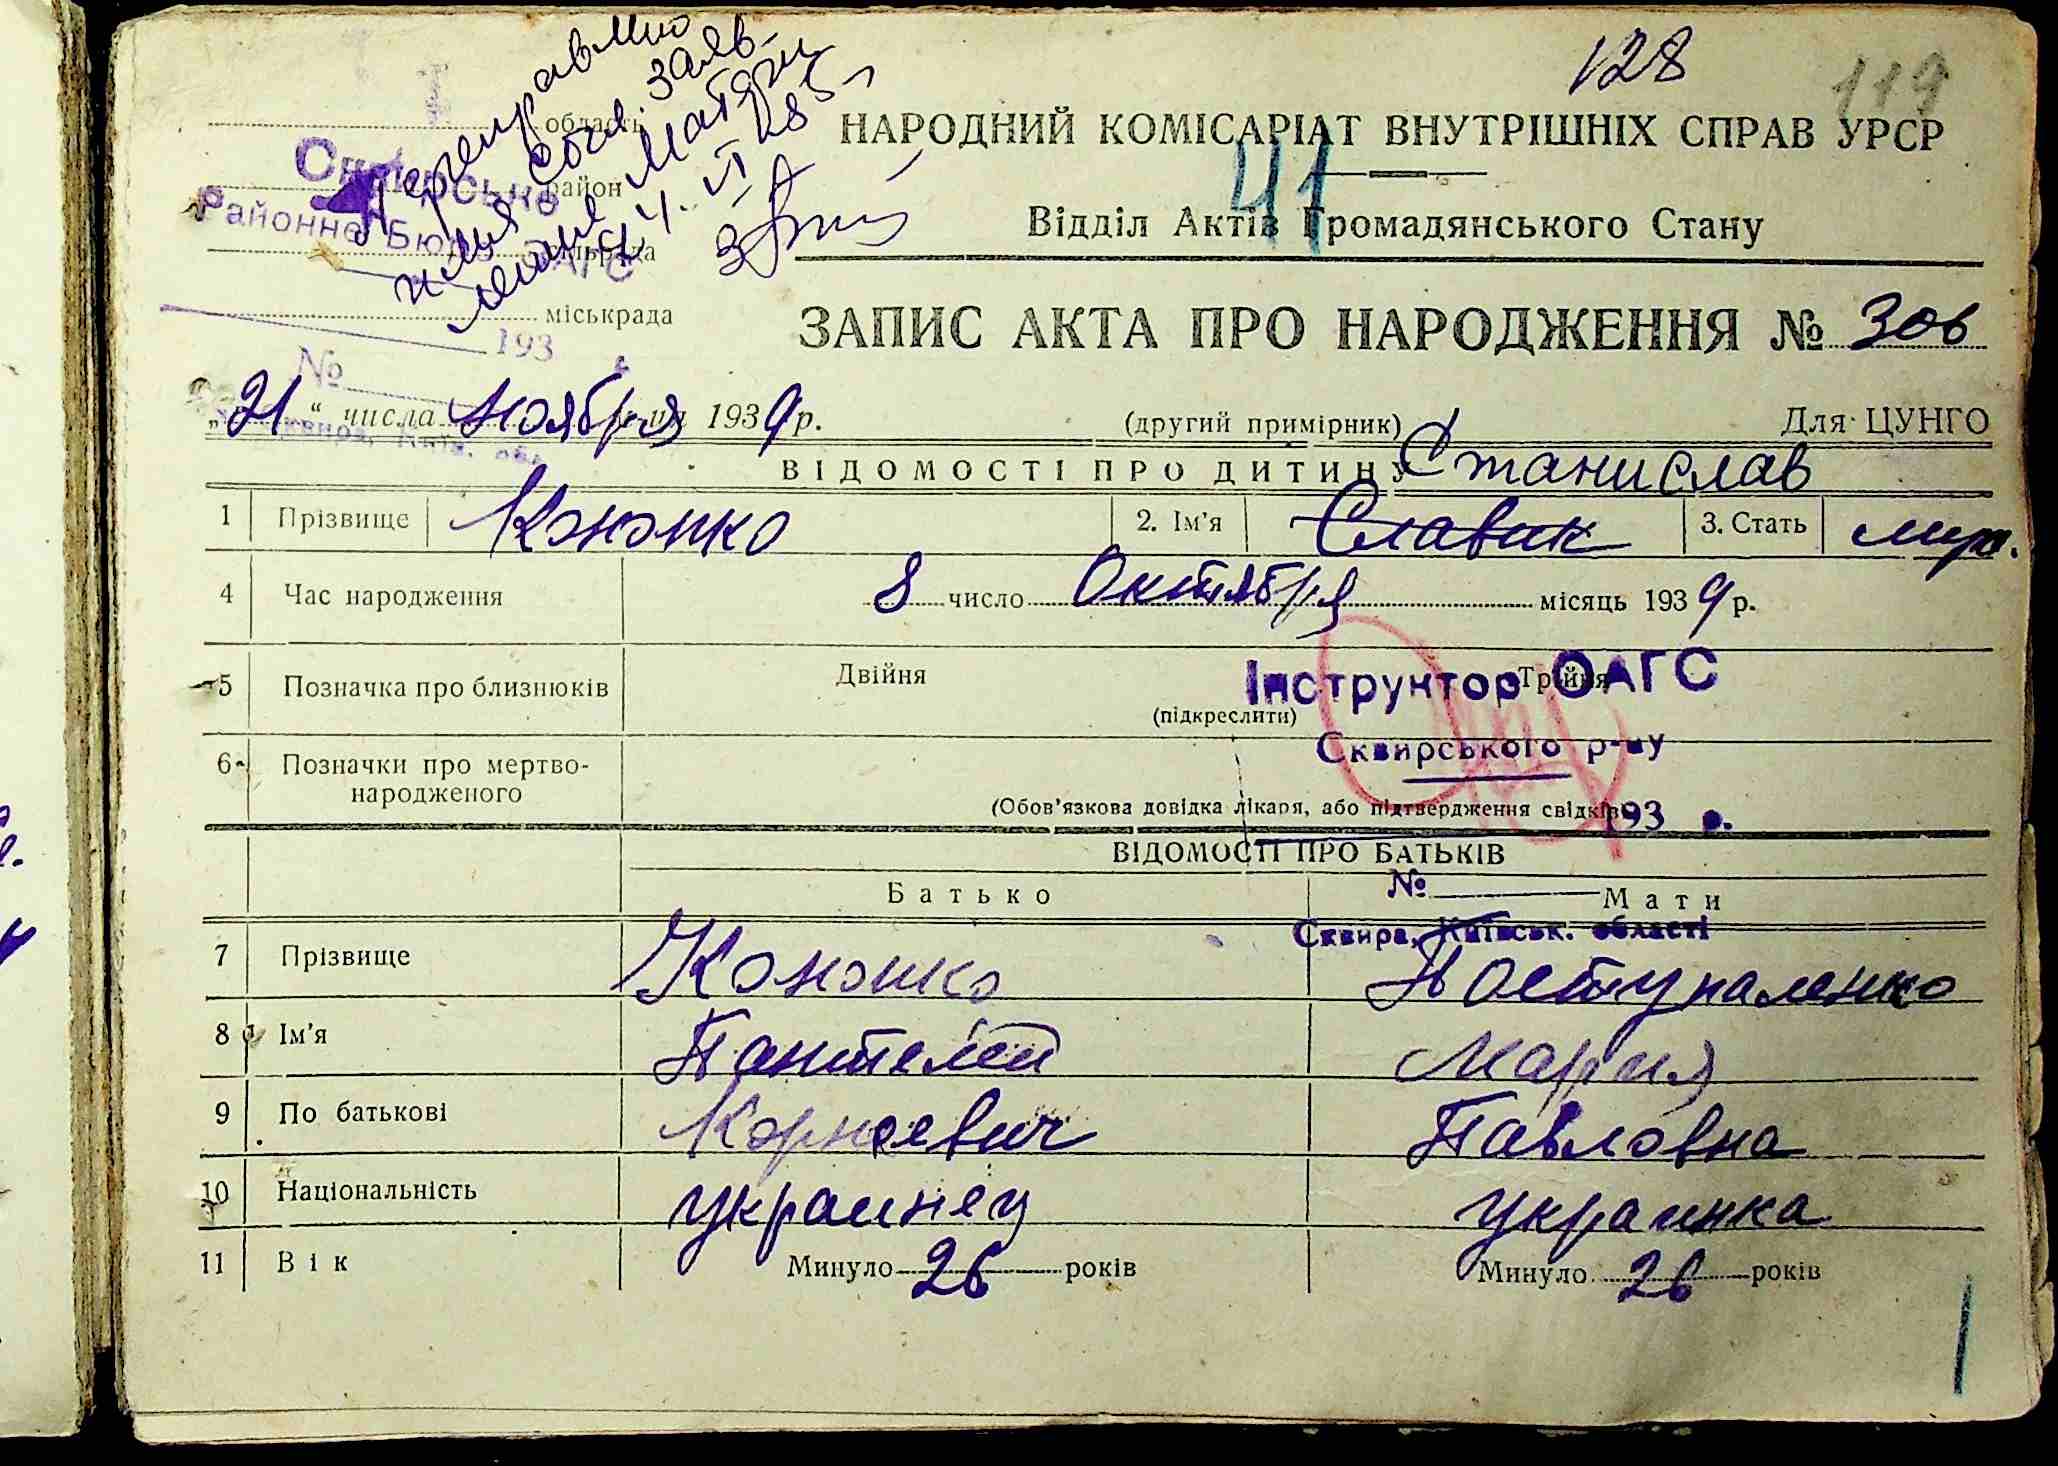 128
119
область
район
сільрада
міськрада
Сквирське
Районне Бюро ЗАГС
193
№
Сквира, Київ. обл.
НАРОДНИЙ КОМІСАРІАТ ВНУТРІШНІХ СПРАВ УРСР
41
Відділ Актів Громадянського Стану
ЗАПИС АКТА ПРО НАРОДЖЕННЯ № 306
„21“ числа ноября м-ця 1939 р. (другий примірник) Для ЦУНГО
ВІДОМОСТІ ПРО ДИТИНУ Станислав
1 Прізвище Кононко 2. Ім’я Славик 3. Стать муж.
4 Час народження 8 число Октября місяць 1939 р.
5 Позначка про близнюків Двійня Трійня
(підкреслити)
Інструктор ОАГС
Сквирського р-ну
6 Позначки про мертво-
народженого
(Обов’язкова довідка лікаря, або підтвердження свідків)
193 р.
ВІДОМОСТІ ПРО БАТЬКІВ
Батько Мати
№
Сквира, Київськ. області
7 Прізвище Кононко
8 Ім’я Пантелей Мария
9 По батькові Корнеевич Павловна
10 Національність украинец украинка
11 Вік Минуло 26 років Минуло 26 років